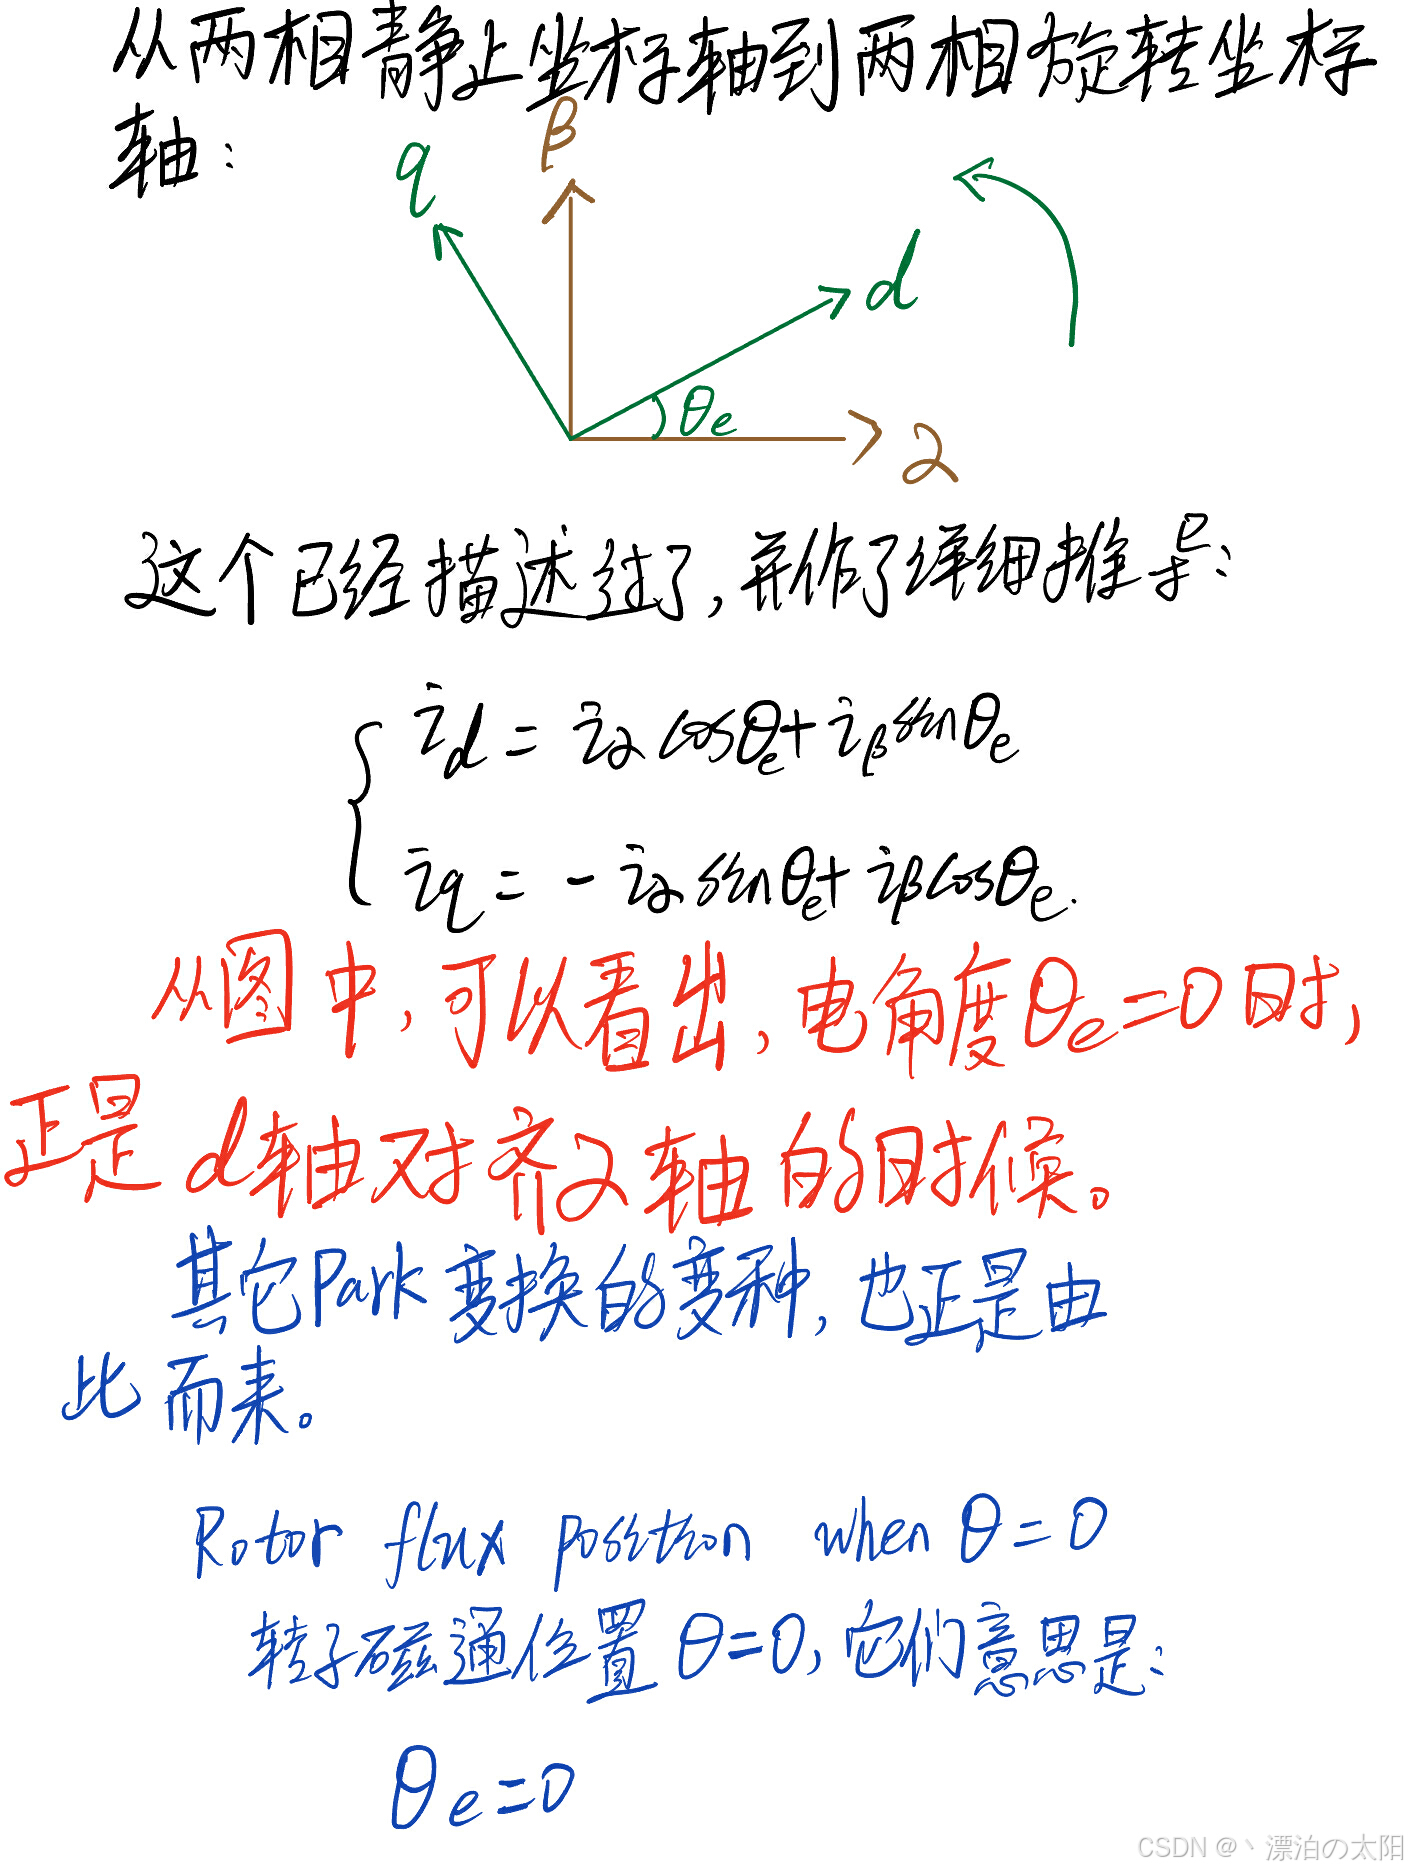 从两相静止坐标轴到两相旋转坐标
轴:
β
q
d
θe
α
这个已经描述过了,并作了详细推导:
id = iα cosθe + iβ sinθe
iq = - iα sinθe + iβ cosθe.
从图中,可以看出,电角度θe=0时,
正是d轴对齐α轴的时候。
其它Park变换的变种,也正是由
此而来。
Rotor flux position when θ=0
转子磁通位置θ=0,它们意思是:
θe=0
CSDN @丶漂泊の太阳